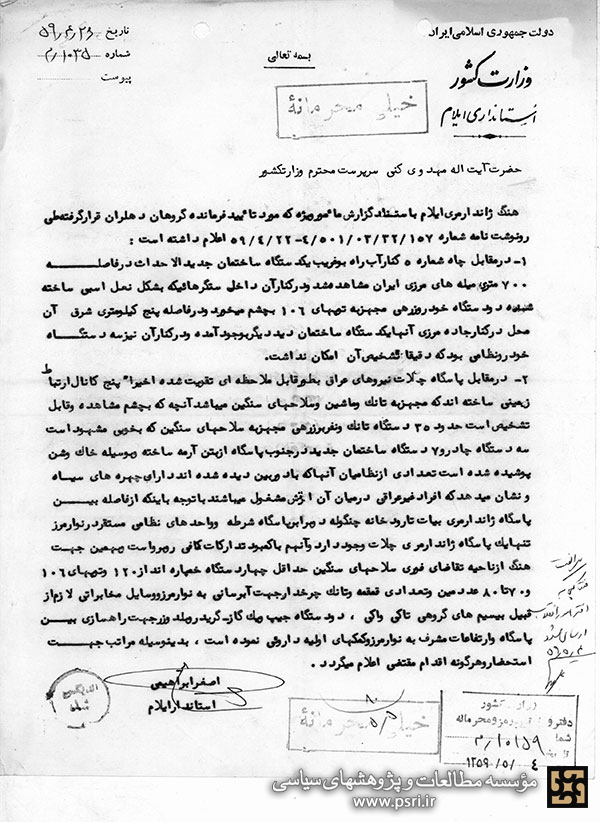 دولت جمهوری اسلامی ایران
وزارت کشور
استانداری ایلام
بسمه تعالی
تاریخ ۵۹/۴/۲۶
شماره م/۱۰۳۵
پیوست
خیلی محرمانهٔ
حضرت آیت اله مهدوی کنی سرپرست محترم وزارتکشور
هنگ ژاندارمری ایلام باستنادگزارش مأمورویژه که مورد تأیید فرمانده گروهان دهلران قرارگرفته طی
رونوشت نامه شماره ۴/۵۰۱/۰۳/۳۲/۱۵۷-۵۹/۴/۲۲ اعلام داشته است :
۱- درمقابل چاه شماره ۵ کنارآب راه بوغریب یکدستگاه ساختمان جدیدالاحداث درفاصله
۷۰۰ متری میله های مرزی ایران مشاهده شد ودرکنارآن داخل سنگرهائیکه بشکل نعل اسبی ساخته
شده دودستگاه خودروزرهی مجهزبه توپهای ۱۰۶ بچشم میخورد ودرفاصله پنج کیلومتری شرق آن
محل درکنارجاده مرزی آنهایکدستگاه ساختمان دیددیگربوجودآمده ودرکنارآن نیزسه دستگاه
خودرونظامی بودکه دقیقا تشخیص آن امکان نداشت.
۲- درمقابل پاسگاه چلات نیروهای عراق بطورقابل ملاحظه ای تقویت شده اخیرا" پنج کانال ارتباط
زمینی ساخته اند که مجهزبه تانک وماشین وسلاحهای سنگین میباشد آنچه که بچشم مشاهده وقابل
تشخیص است حدود ۳۵ دستگاه تانک ونفربرزرهی مجهزبه سلاحهای سنگین که بخوبی مشهود است
سه دستگاه چادرو۷ دستگاه ساختمان جدید درجنوب پاسگاه ازبتن آرمه ساخته وبوسیله خاک وشن
پوشیده شده است تعدادی ازنظامیان آنهاکه بادوربین دیده شده اند دارای چهره های سیاه
و نشان میدهدکه افراد غیرعراقی درمیان آن ارتش مشغول میباشند باتوجه باینکه ازفاصله بین
پاسگاه ژاندارمری بیات تارودخانه چنگوله دربرابرپاسگاه شرطه وواحدهای نظامی مستقردرنوارمرز
تنهایک پاسگاه ژاندارمری چلات وجود دارد وآنهم باکمبود تدارکات کافی روبرواست وبهمین جهت
هنگ ازناحیه تقاضای فوری سلاحهای سنگین حداقل چهاردستگاه خمپاره انداز ۱۲۰ وتوپهای ۱۰۶
و ۷۰ تا ۸۰ عدد مین وتعدادی قمقمه وتانک چرخدارجهت آبرسانی به نوارمرزووسایل مخابراتی لازم از
قبیل بیسیم های گروهی تاکی واکی ، دودستگاه جیپ ویک گاز ـ گریدرو بلدوزرجهت راهسازی بین
پاسگاه وارتفاعات مشرف به نوارمرزوکمکهای اولیه داروئی نموده است ، بدینوسیله مراتب جهت
استحضاروهرگونه اقدام مقتضی اعلام میگردد .
اصغرابراهیمی
استاندارایلام
خیلی محرمانهٔ
وزارت کشور
م/۱۰۱۵۹
۱۳۵۹/۵/۴
مؤسسه مطالعات و پژوهشهای سیاسی
www.psri.ir